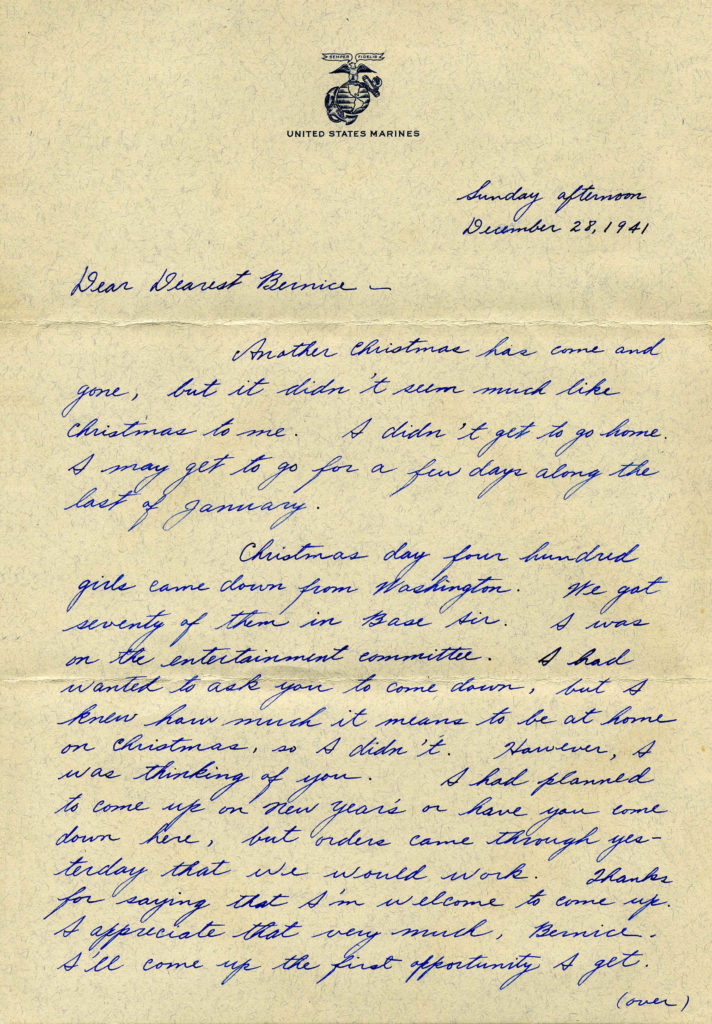 SEMPER FIDELIS
UNITED STATES MARINES
Sunday afternoon
December 28, 1941
Dear Dearest Bernice —
Another Christmas has come and
gone, but it didn't seem much like
Christmas to me. I didn't get to go home.
I may get to go for a few days along the
last of January.
Christmas day four hundred
girls came down from Washington. We got
seventy of them in Base Air. I was
on the entertainment committee. I had
wanted to ask you to come down, but I
knew how much it means to be at home
on Christmas, so I didn't. However, I
was thinking of you. I had planned
to come up on New Year's or have you come
down here, but orders came through yes-
terday that we would work. Thanks
for saying that I'm welcome to come up.
I appreciate that very much, Bernice.
I'll come up the first opportunity I get.
(over)